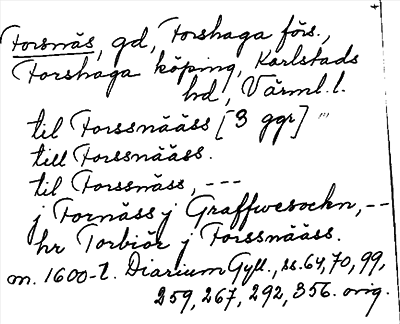 Forsnäs, gd, Forshaga förs.,
Forshaga köping, Karlstads
hd, Värml. l.
til Forssnääss [3 ggr] "'
till Forssnääss.
til Forssnäss, ---
j Fornäss j Graffwesockn, --
hr Torbiör j Forssnääss.
m. 1600-t. Diarium Gyll., ss. 64, 70, 99,
259, 267, 292, 356. orig.